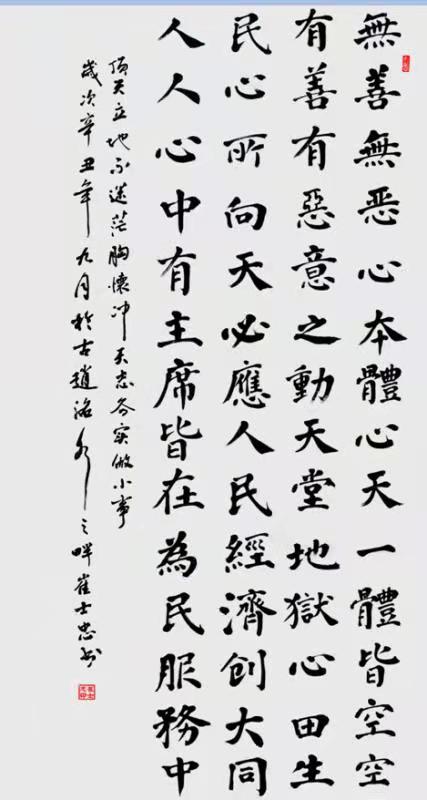 無善無恶心本體心天一體皆空空
有善有惡意之動天堂地獄心田生
民心所向天必應人民經濟創大同
人人心中有主席皆在為民服務中
頂天立地不迷茫胸懷冲天志务实做小事
歲次辛丑年九月於古趙洺水之畔崔士忠书